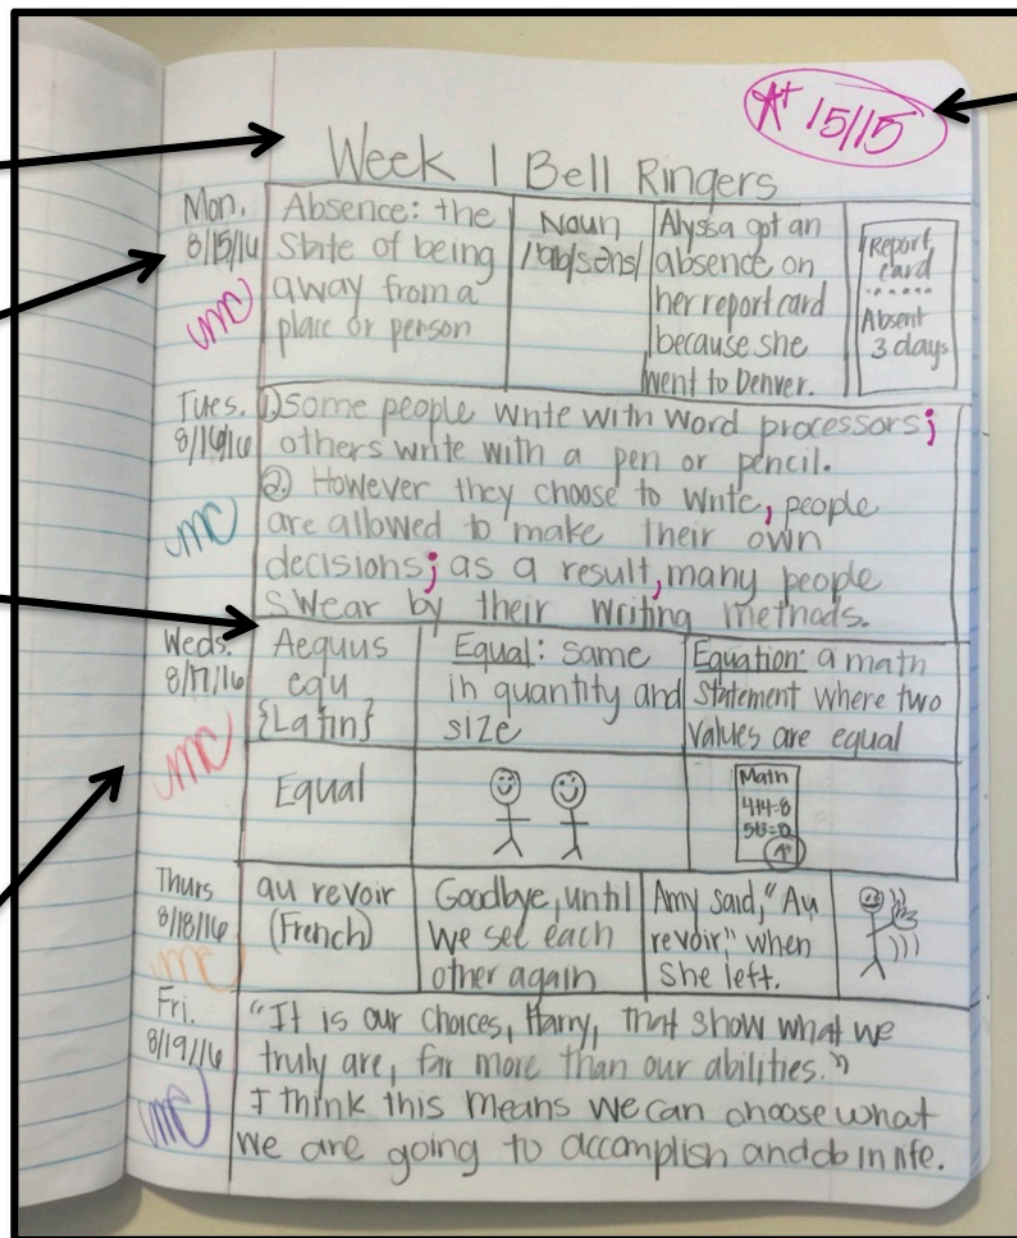 A+ 15/15
Week 1 Bell Ringers
Mon.
8/15/16
Absence: the
State of being
away from a
place or person
Noun
/'ab/səns/
Alyssa got an
absence on
her report card
because she
went to Denver.
Report
card
Absent
3 days
Tues.
8/16/16
1.) Some people write with word processors;
others write with a pen or pencil.
2.) However they choose to write, people
are allowed to make their own
decisions; as a result, many people
swear by their writing methods.
Weds.
8/17/16
Aequus
equ
{Latin}
Equal: same
in quantity and
size
Equation: a math
statement where two
values are equal
Equal
Math
4+4=8
A+
Thurs
8/18/16
au revoir
(French)
Goodbye, until
we see each
other again
Amy said, "Au
revoir," when
she left.
Fri.
8/19/16
"It is our choices, Harry, that show what we
truly are, far more than our abilities."
I think this means we can choose what
we are going to accomplish and do in life.